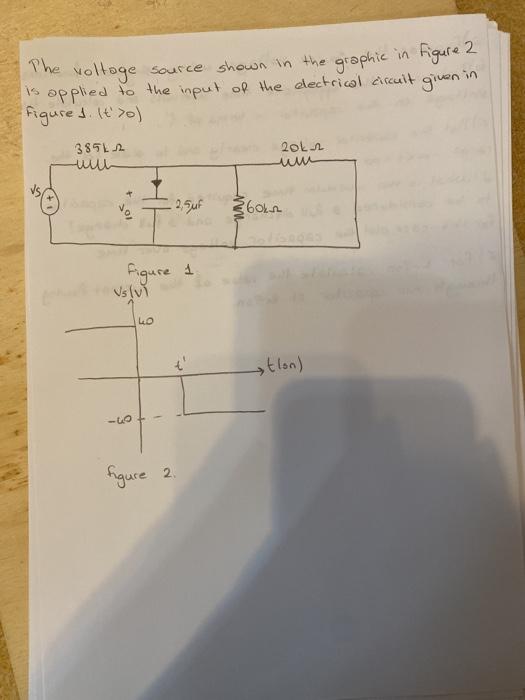 The voltage source shown in the graphic in Figure 2
is applied to the input of the electrical circuit given in
Figure 1. (t'>0)
385kΩ
20kΩ
Vs
+
Vo
-
2,5μF
60kΩ
Figure 1
Vs(V)
40
t'
t(sn)
-40
figure 2.